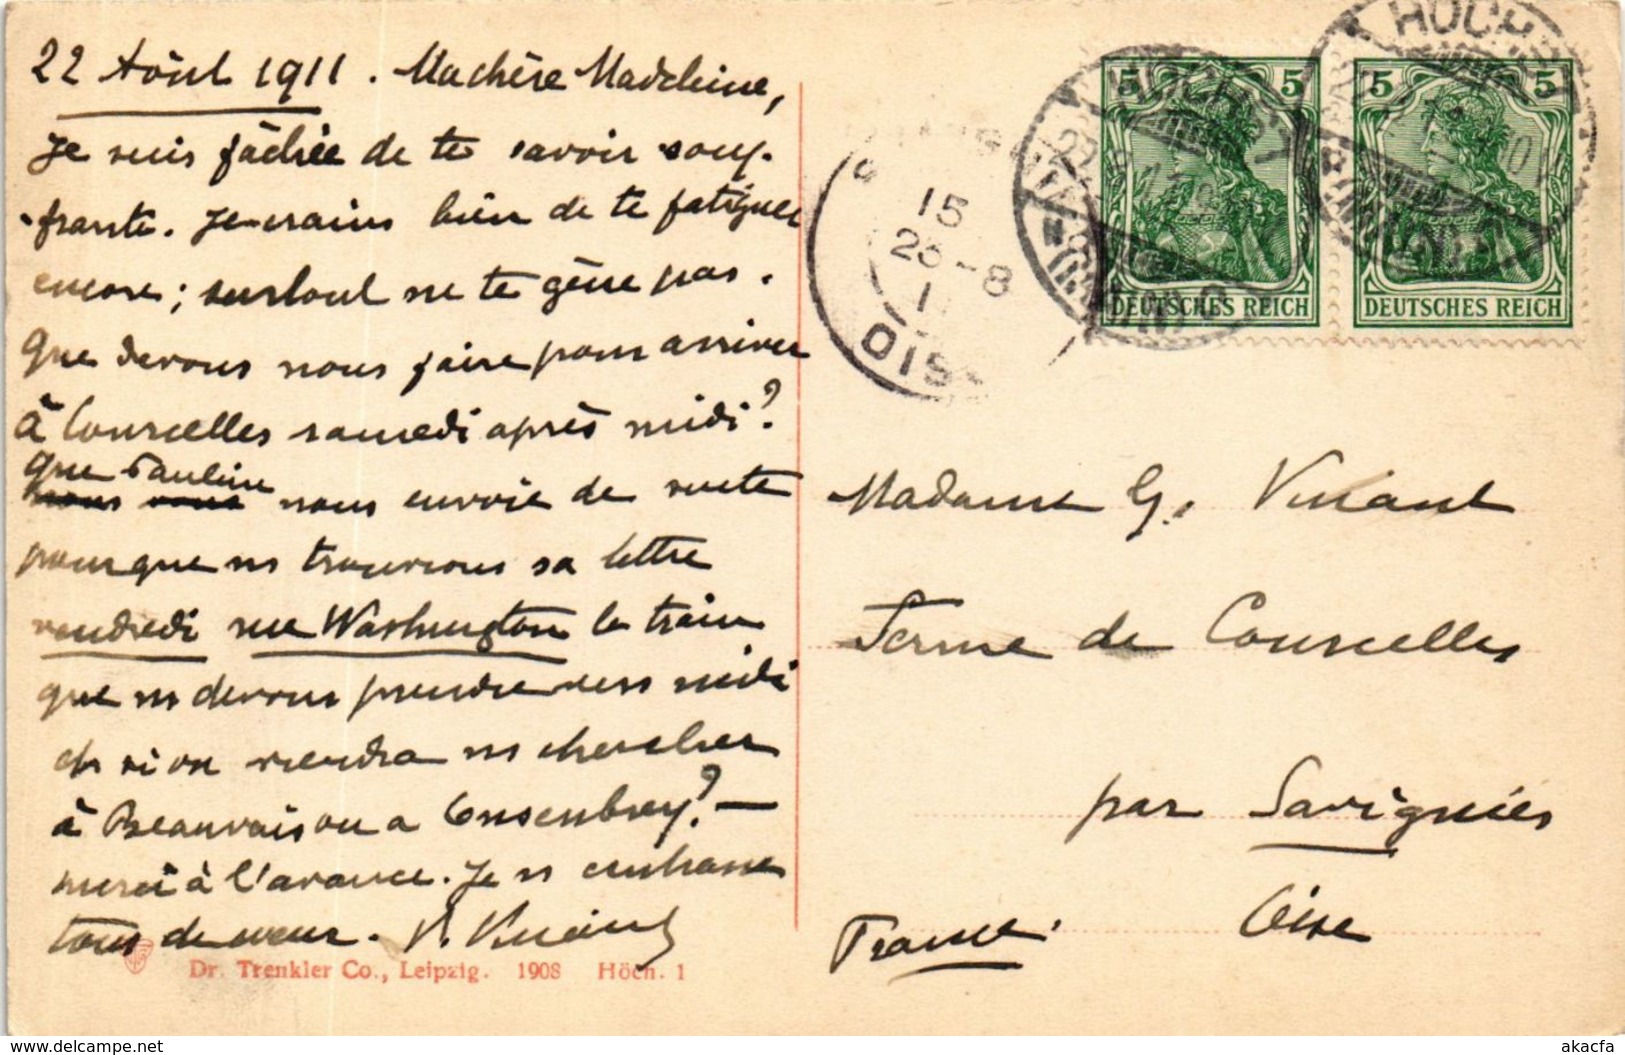 22 Août 1911. Ma chère Madeleine,
je suis fâchée de te savoir souf-
-frante. Je crains bien de te fatiguer
encore ; surtout ne te gêne pas.
Que devons nous faire pour arriver
à Courcelles samedi après midi ?
que Pauline
nous envoie de suite
pour que ns trouvions sa lettre
vendredi rue Washington le train
que ns devons prendre vers midi
et si on viendra ns chercher
à Beauvais ou a ?
merci à l'avance. Je ns embrasse
tous de coeur.
Dr. Trenkler Co., Leipzig. 1908 Höch. 1
15
26-8
1
OIS
HÖCHST
HÖCH
5 5
DEUTSCHES REICH
5 5
DEUTSCHES REICH
Madame G. Vuiant
Ferme de Courcelles
par Savignies
Oise
France.
akpool.co.uk
akacfa